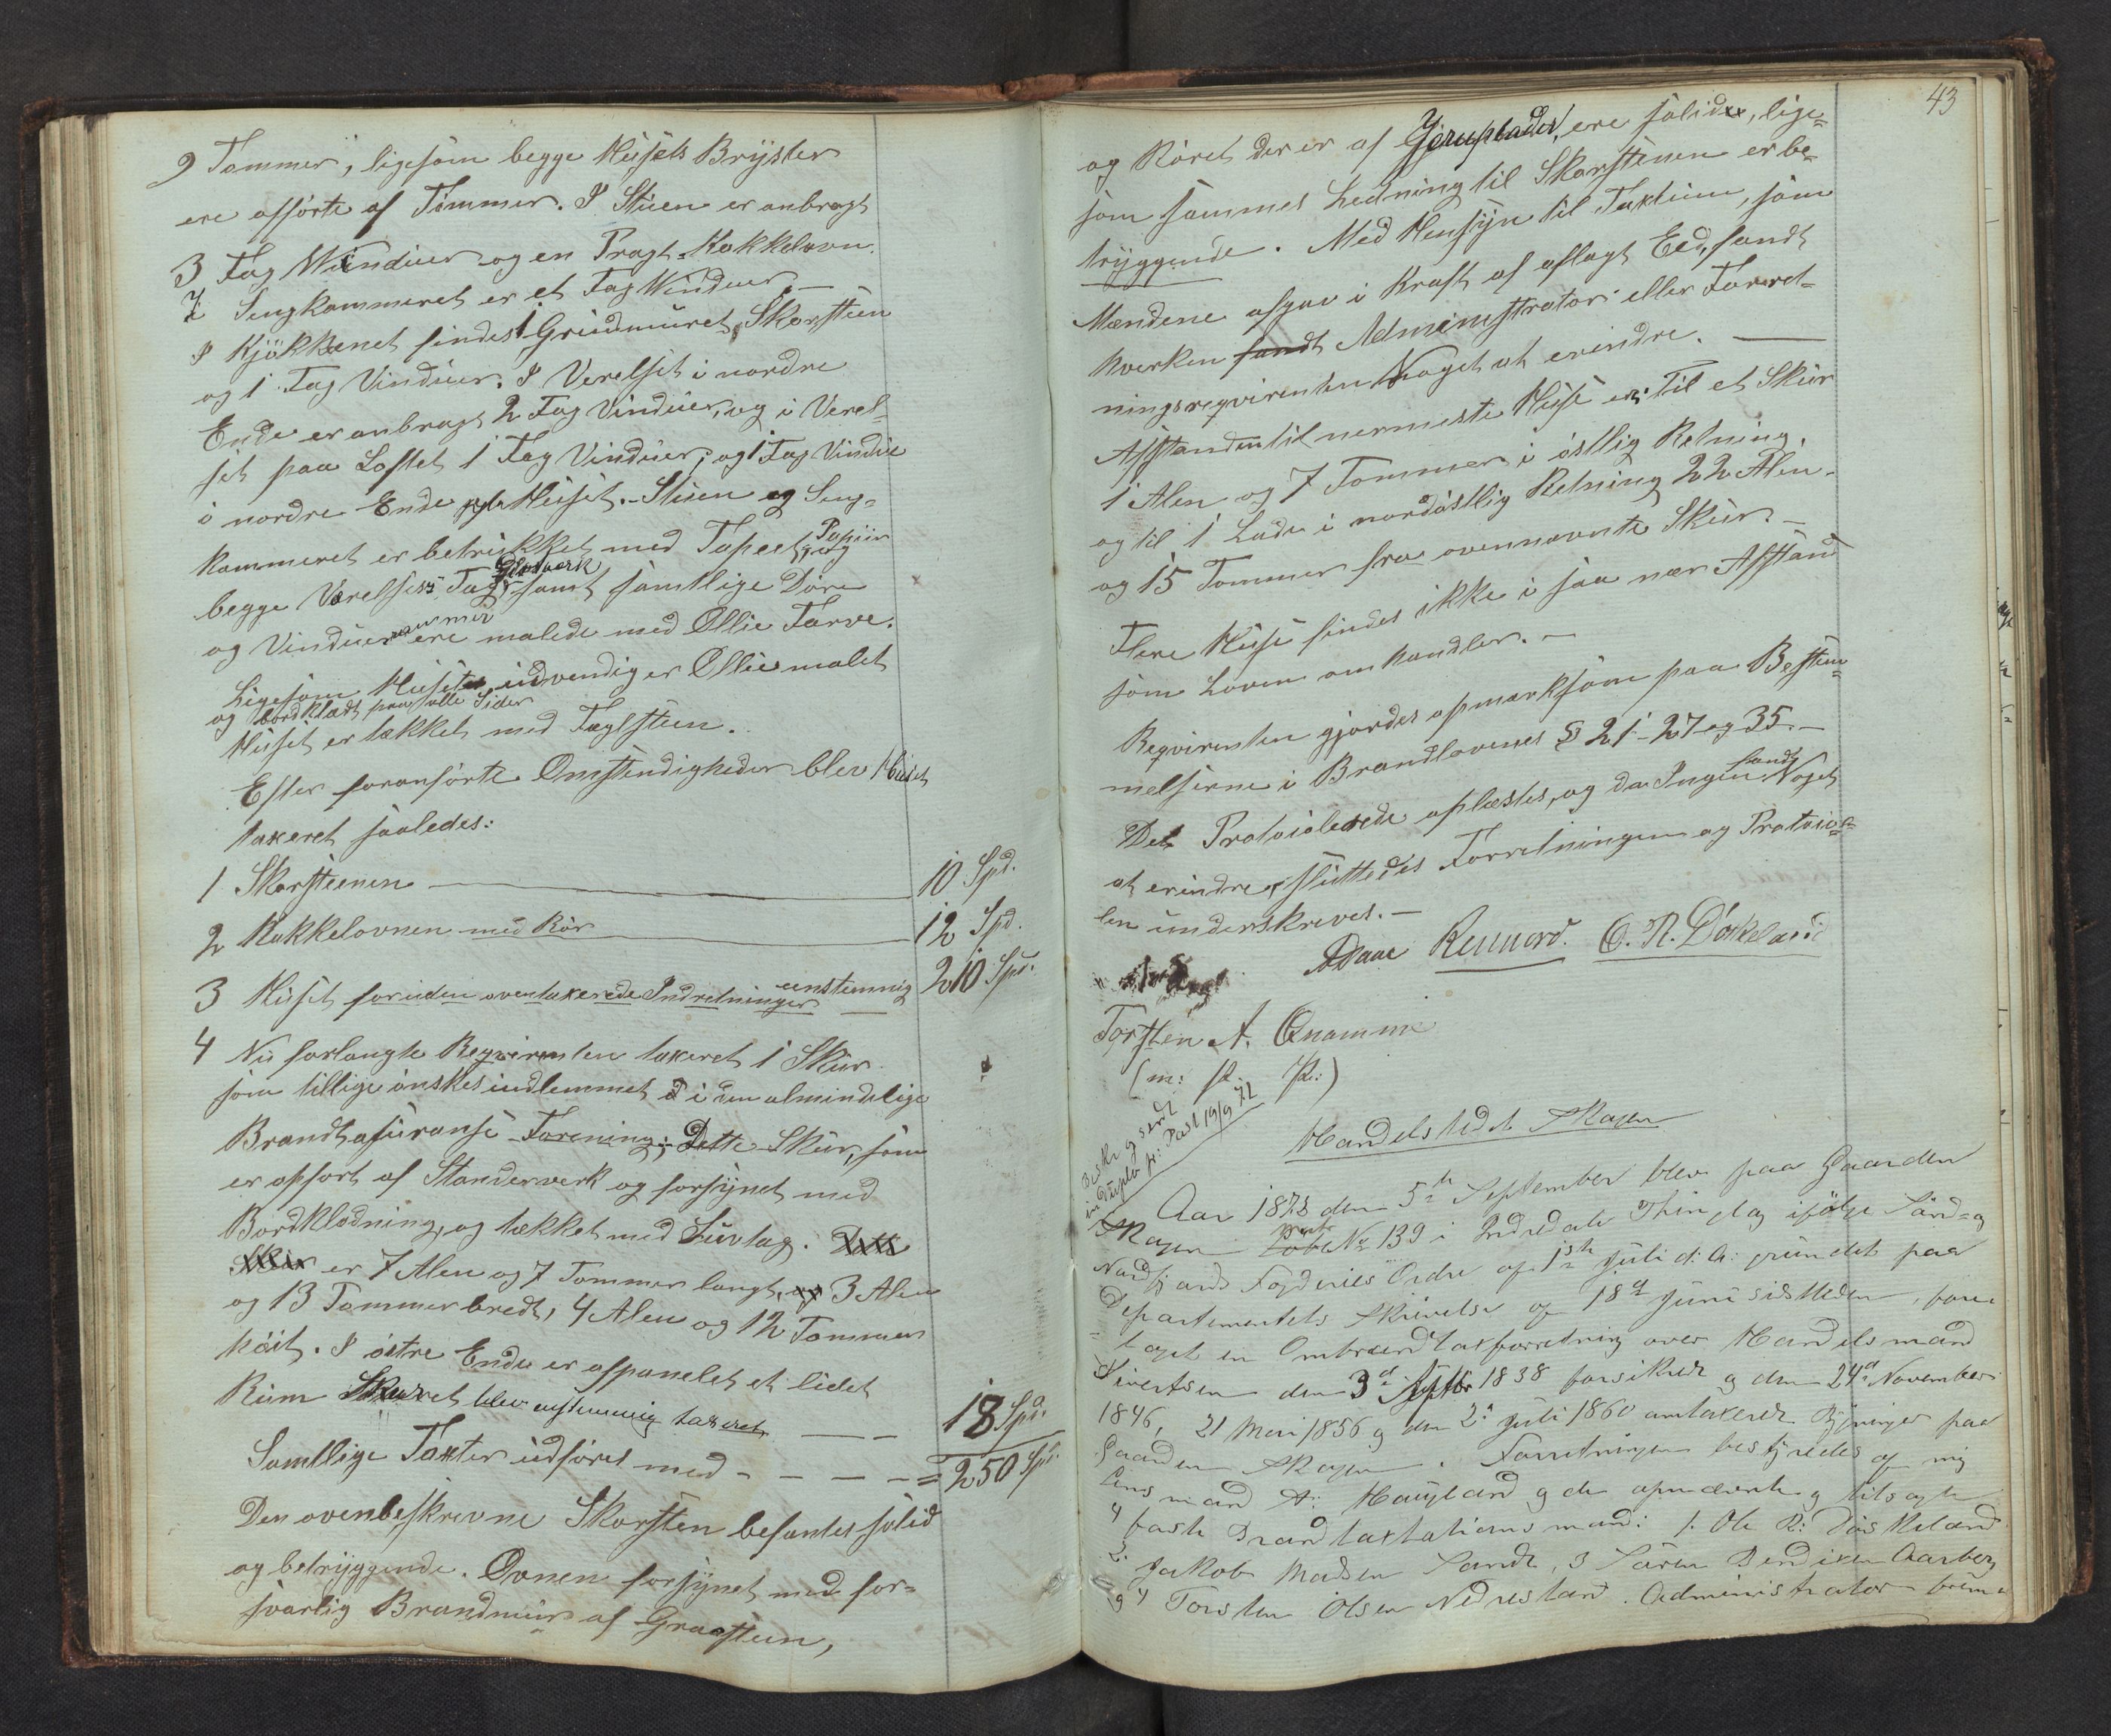 9 Tommer, ligesom begge Husets Bryster
ere opførte af Tømmer. I Stuen er anbragt
3 Fag Vinduer og en Pragt-Kakkelovn.
I Sengkammeret er et Fag Vinduer. —
I Kjøkkenet findes 1 Grundmuret Skorsteen
og 1 Fag Vinduer. I Værelset i nordre
Ende er anbragt 2 Fag Vinduer, og i Værel-
set paa Loftet 1 Fag Vinduer; og 1 Fag Vindue
i nordre Ende af Huset. Stuen og Seng-
kammeret er betrukket med Tapeet Papiir
begge Værelsers Tag samt samtlige Døre
og Vinduer ere malede med Ollie Farve.
Ligesom Huset udvendig er Ollie malet
og bordklædt paa alle Sider
Huset er tækket med Taglsteen.
Efter foranførte Omstendigheder blev Huset
taxeret saaledes:
1 Skorsteenen — 10 Spd.
2 Kakkelovnen med Rør — 12 Spd.
3 Huset foruden oventaxerede Indretninger eenstemmig — 210 Spd.
4 Nu forlangte Reqvirenten taxeret 1 Skur
som tillige ønskes indlemmet i den almindelige
Brandtasuranse Forening; Dette Skur, som
er opført af Standerverk og forsynet med
Bordklædning, og tækket med Suvtag. Dette
Skur er 7 Alen og 7 Tommer langt, og 3 Alen
og 13 Tommer bredt, 4 Alen og 12 Tommer
høit. I østre Ende er afpanelet et lidet
Rum Skuret blev enstemmig taxeret — 18 Spd.
Samtlige Taxter udføres med - - - - = 250 Spd.
Den ovenbeskrevne Skorsten befantes solid
og betryggende. Ovnen forsynet med for-
svarlig Brandmur af Graasteen,
43
og Røret der er af Jernplader, ere solide, lige-
som sammes Ledning til Skorstenen er be-
tryggende. Med Hensyn til Taxtsum, som
Mændene afgav i Kraft af aflagt Eed, fandt
hverken fandt Administrator eller Forret-
ningsreqvirenten Noget at erindre. —
Afstanden til nermeste Huse er: Til et Skur
1 Alen og 7 Tommer i østlig Retning,
og til 1 Lade i nordøstlig Retning 22 Alen
og 15 Tommer fra ovennævnte Skur. —
Flere Huse findes ikke i saa nær Afstand
som Loven omhandler. —
Reqvirenten gjordes opmærksom paa Bestem-
melserne i Brandlovens § 21 - 27 og 35. —
Det Protocolerede oplæstes, og da Ingen fandt Noget
at erindre, sluttedes Forretningen og Protoco-
len underskreves. —
Aaae Rennord. O. R. Døskeland
Torsten A. Qvamme
(m: p. P:)
Beskr. og sendt
in duplo pr: Post 19/9 72
Handelstedet Skagen
Aar 1873 den 5te September blev paa Gaarden
Skagen Matr No 139 i Indredale Thinglag ifølge Sønd- og
Nordfjords Fogderies Ordre af 1ste Juli d: A: grundet paa
Departementets Skrivelse af 18de Juni sidstleden, fore-
taget en Ombrandtaxtforretning over Handelsmand
Sivertsen den 3de Septbr 1838 forsikrede og den 24de November
1846, 21 Mai 1856 og den 2den Juli 1860 omtaxerede Bygninger paa
Gaarden Skagen. Forretningen bestyredes af mig
Lensmand A: Haugland og de opnævnte og tilsagte
4 faste Brandtaxtationsmænd: 1. Ole R: Døskeland
2. Jakob Madsen Sande, 3 Søren Bendixen Aarberg
og 4 Torsten Olsen Nedrestand. Administrator frem-